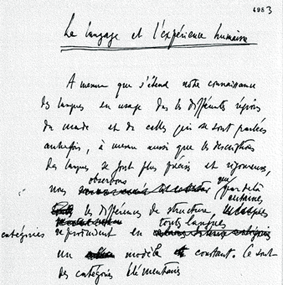 Le langage et l'expérience humaine
A mesure que s'étend notre connaissance
des langues en usage ds les différentes régions
du monde et de celles qui se sont parlées
autrefois, à mesure aussi que les descriptions
des langues se font plus précises et rigoureuses,
observons que
nous par delà
certaines
les différences de structure,
toutes langues
catégories reproduisent en
un modèle et constant. Ce sont
des catégories élémentaires